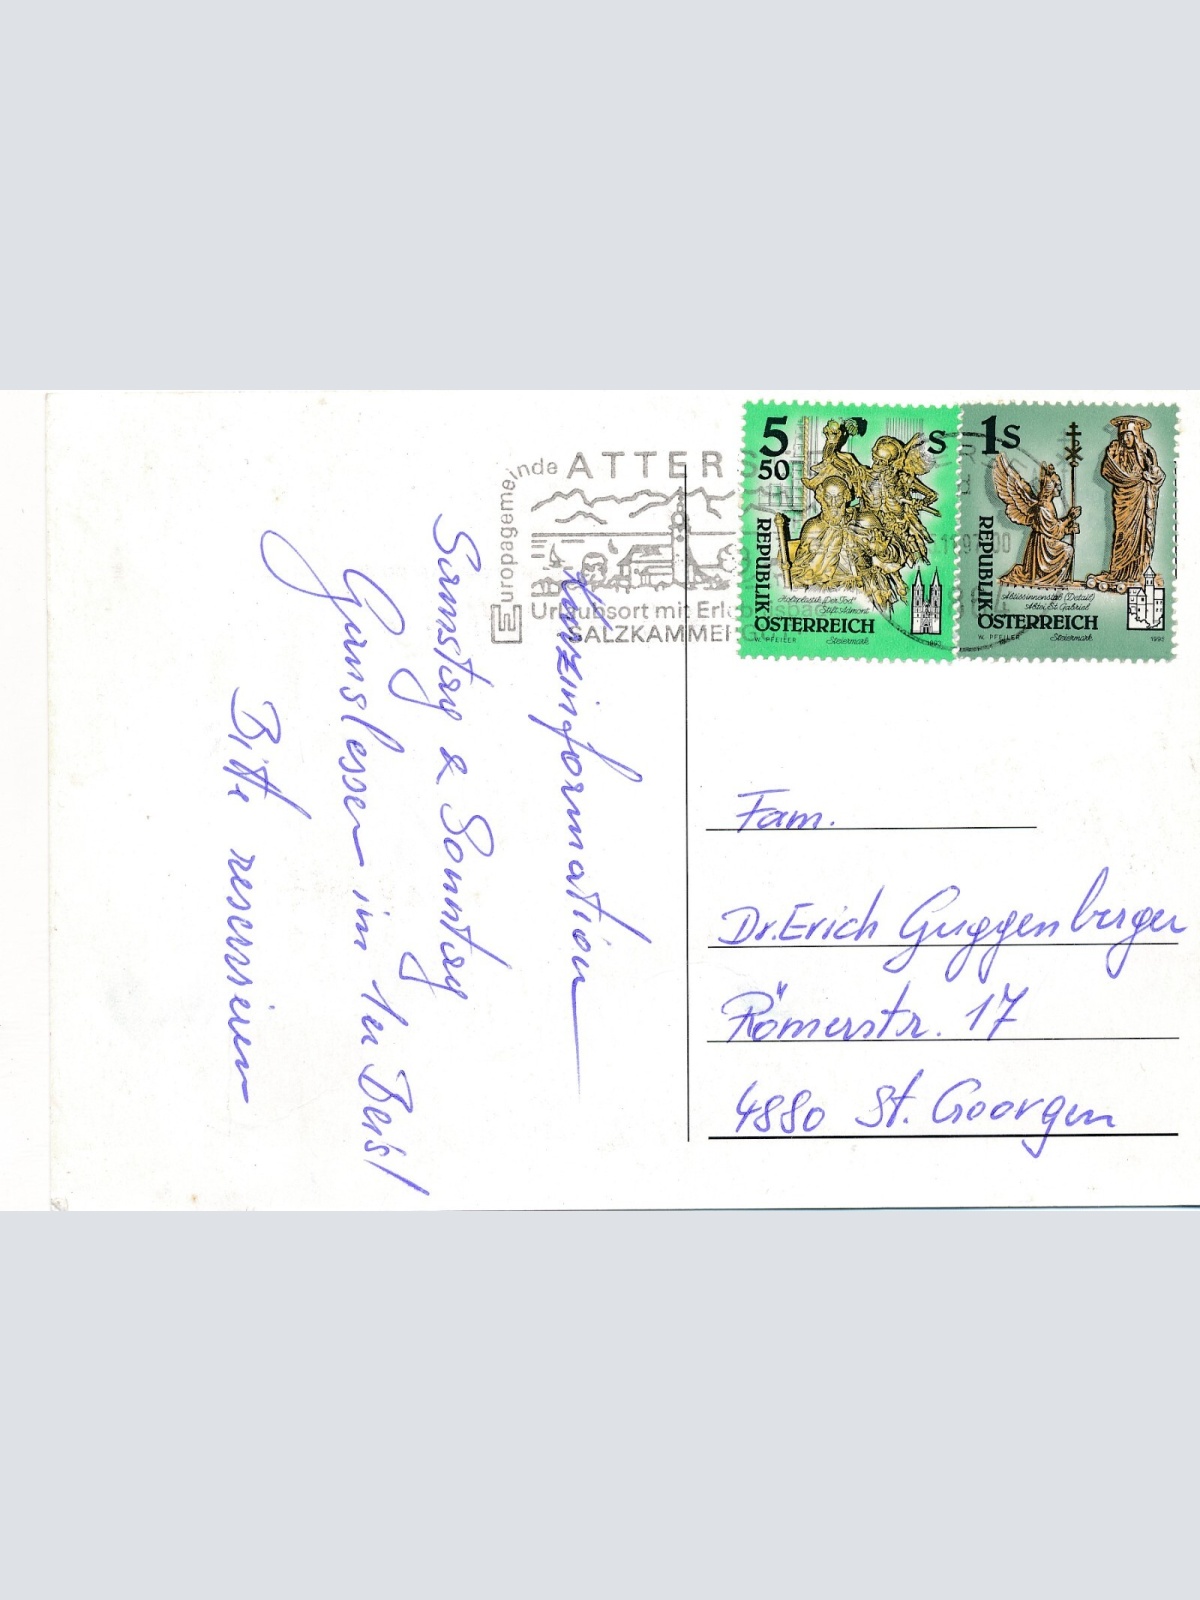 Europagemeinde ATTERS
Urlaubsort mit Erl
SALZKAMMERG
5 50 S
REPUBLIK
ÖSTERREICH
Holzplastik "Der Tod"
Stift Admont
Steiermark
W. PFEILER
1S
REPUBLIK
ÖSTERREICH
Äbtissinnenstab (Detail)
Abtei St. Gabriel
Steiermark
W. PFEILER
Kurzinformation
Samstag & Sonntag
Ganslessen im 1er Beisl
Bitte reservieren
Fam.
Dr. Erich Guggenberger
Römerstr. 17
4880 St. Georgen